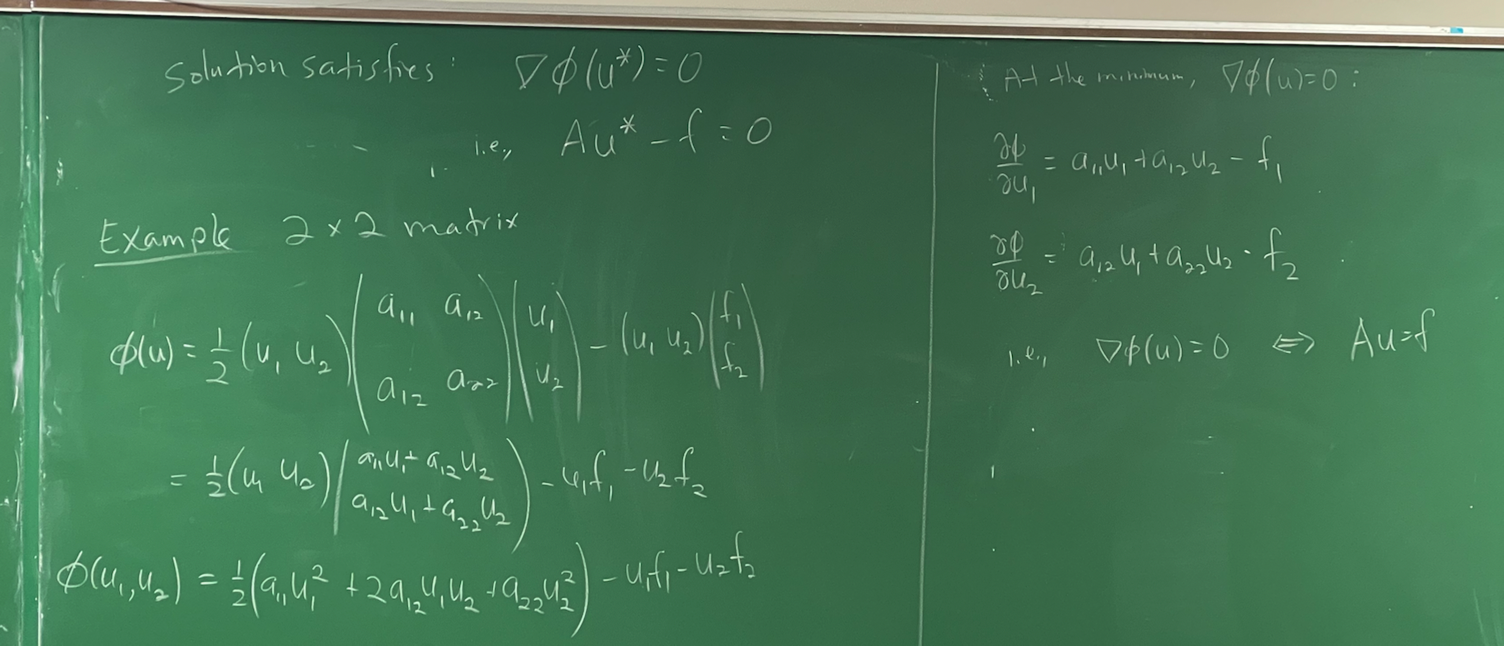 Solution satisfies: ∇ϕ(u*)=0
i.e., Au* - f = 0
Example 2 × 2 matrix
ϕ(u) = 1/2 (u₁ u₂) (a₁₁ a₁₂ ; a₁₂ a₂₂) (u₁ ; u₂) - (u₁ u₂) (f₁ ; f₂)
= 1/2 (u₁ u₂) (a₁₁u₁ + a₁₂u₂ ; a₁₂u₁ + a₂₂u₂) - u₁f₁ - u₂f₂
ϕ(u₁,u₂) = 1/2 (a₁₁u₁² + 2a₁₂u₁u₂ + a₂₂u₂²) - u₁f₁ - u₂f₂
At the minimum, ∇ϕ(u)=0:
∂ϕ/∂u₁ = a₁₁u₁ + a₁₂u₂ - f₁
∂ϕ/∂u₂ = a₁₂u₁ + a₂₂u₂ - f₂
i.e., ∇ϕ(u)=0 ⇔ Au=f